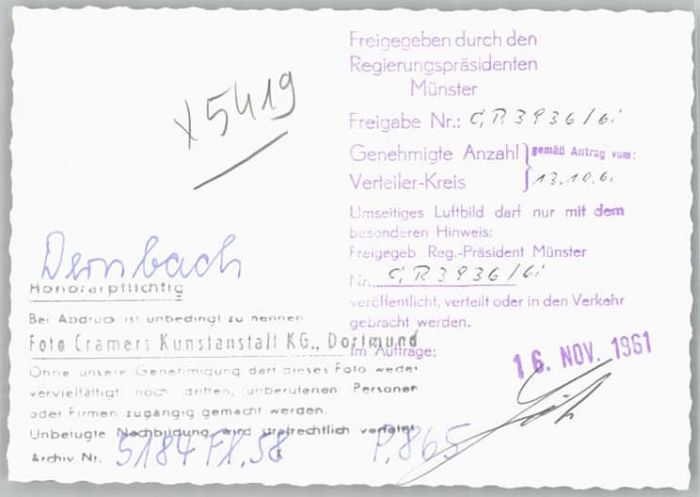 x5419
Dernbach
Honorarpflichtig
Bei Abdruck ist unbedingt zu nennen
Foto Cramers Kunstanstalt KG., Dortmund
Ohne unsere Genehmigung darf dieses Foto weder
vervielfältigt noch dritten, unberufenen Personen
oder Firmen zugängig gemacht werden.
Unbefugte Nachbildung wird strafrechtlich verfolgt
Archiv Nr. 5184 Fl. 58 P. 865
Freigegeben durch den
Regierungspräsidenten
Münster
Freigabe Nr.: C,R 3936/61
Genehmigte Anzahl } gemäß Antrag vom:
Verteiler-Kreis 13.10.61
Umseitiges Luftbild darf nur mit dem
besonderen Hinweis:
Freigegeb. Reg.-Präsident Münster
Nr. C,R 3936/61
veröffentlicht, verteilt oder in den Verkehr
gebracht werden.
Im Auftrage:
16. NOV. 1961